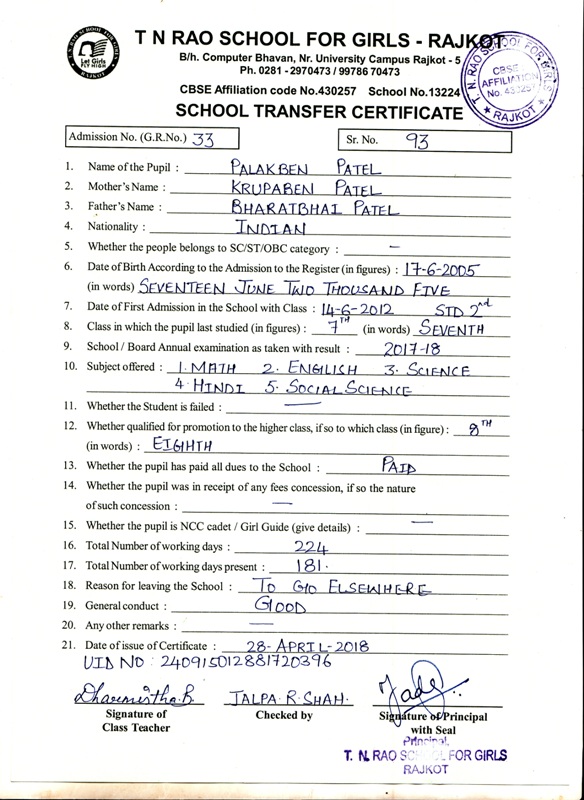 T N RAO SCHOOL FOR GIRLS - RAJKOT
B/h. Computer Bhavan, Nr. University Campus Rajkot - 5
Ph. 0281 - 2970473 / 99786 70473
CBSE Affiliation code No.430257 School No.13224
SCHOOL TRANSFER CERTIFICATE
Let Girls
FLY HIGH
T. N. RAO SCHOOL FOR GIRLS
CBSE
AFFILIATION
No. 430257
★ RAJKOT ★
Admission No. (G.R.No.) 33 Sr. No. 93
1. Name of the Pupil : PALAKBEN PATEL
2. Mother's Name : KRUPABEN PATEL
3. Father's Name : BHARATBHAI PATEL
4. Nationality : INDIAN
5. Whether the people belongs to SC/ST/OBC category : —
6. Date of Birth According to the Admission to the Register (in figures) : 17-6-2005
(in words) SEVENTEEN JUNE TWO THOUSAND FIVE
7. Date of First Admission in the School with Class : 14-6-2012 STD 2nd
8. Class in which the pupil last studied (in figures) : 7TH (in words) SEVENTH
9. School / Board Annual examination as taken with result : 2017-18
10. Subject offered : 1. MATH 2. ENGILISH 3. SCIENCE
4. HINDI 5. SOCIAL SCIENCE
11. Whether the Student is failed : —
12. Whether qualified for promotion to the higher class, if so to which class (in figure) : 8TH
(in words) : EIGHTH
13. Whether the pupil has paid all dues to the School : PAID
14. Whether the pupil was in receipt of any fees concession, if so the nature
of such concession : —
15. Whether the pupil is NCC cadet / Girl Guide (give details) : —
16. Total Number of working days : 224
17. Total Number of working days present : 181.
18. Reason for leaving the School : TO GO ELSEWHERE
19. General conduct : GOOD
20. Any other remarks : —
21. Date of issue of Certificate : 28-APRIL-2018
UID NO : 240915012881720396
JALPA R. SHAH.
Signature of Checked by Signature of Principal
Class Teacher with Seal
Principal
T. N. RAO SCHOOL FOR GIRLS
RAJKOT